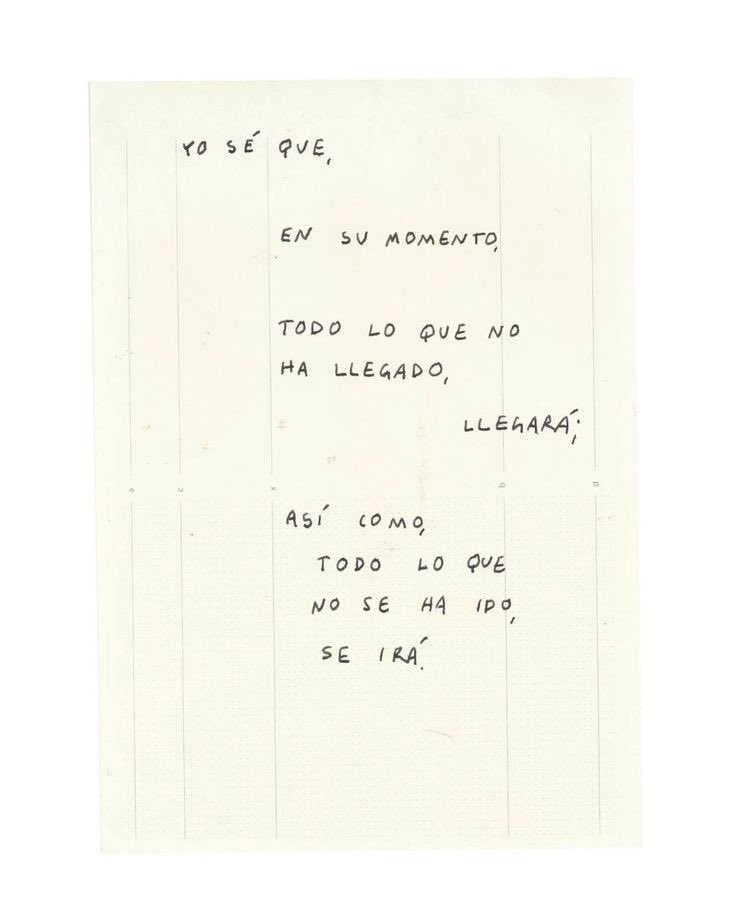 YO SÉ QUE,
EN SU MOMENTO,
TODO LO QUE NO
HA LLEGADO,
LLEGARÁ;
a c x b d
ASÍ COMO,
TODO LO QUE
NO SE HA IDO,
SE IRÁ.